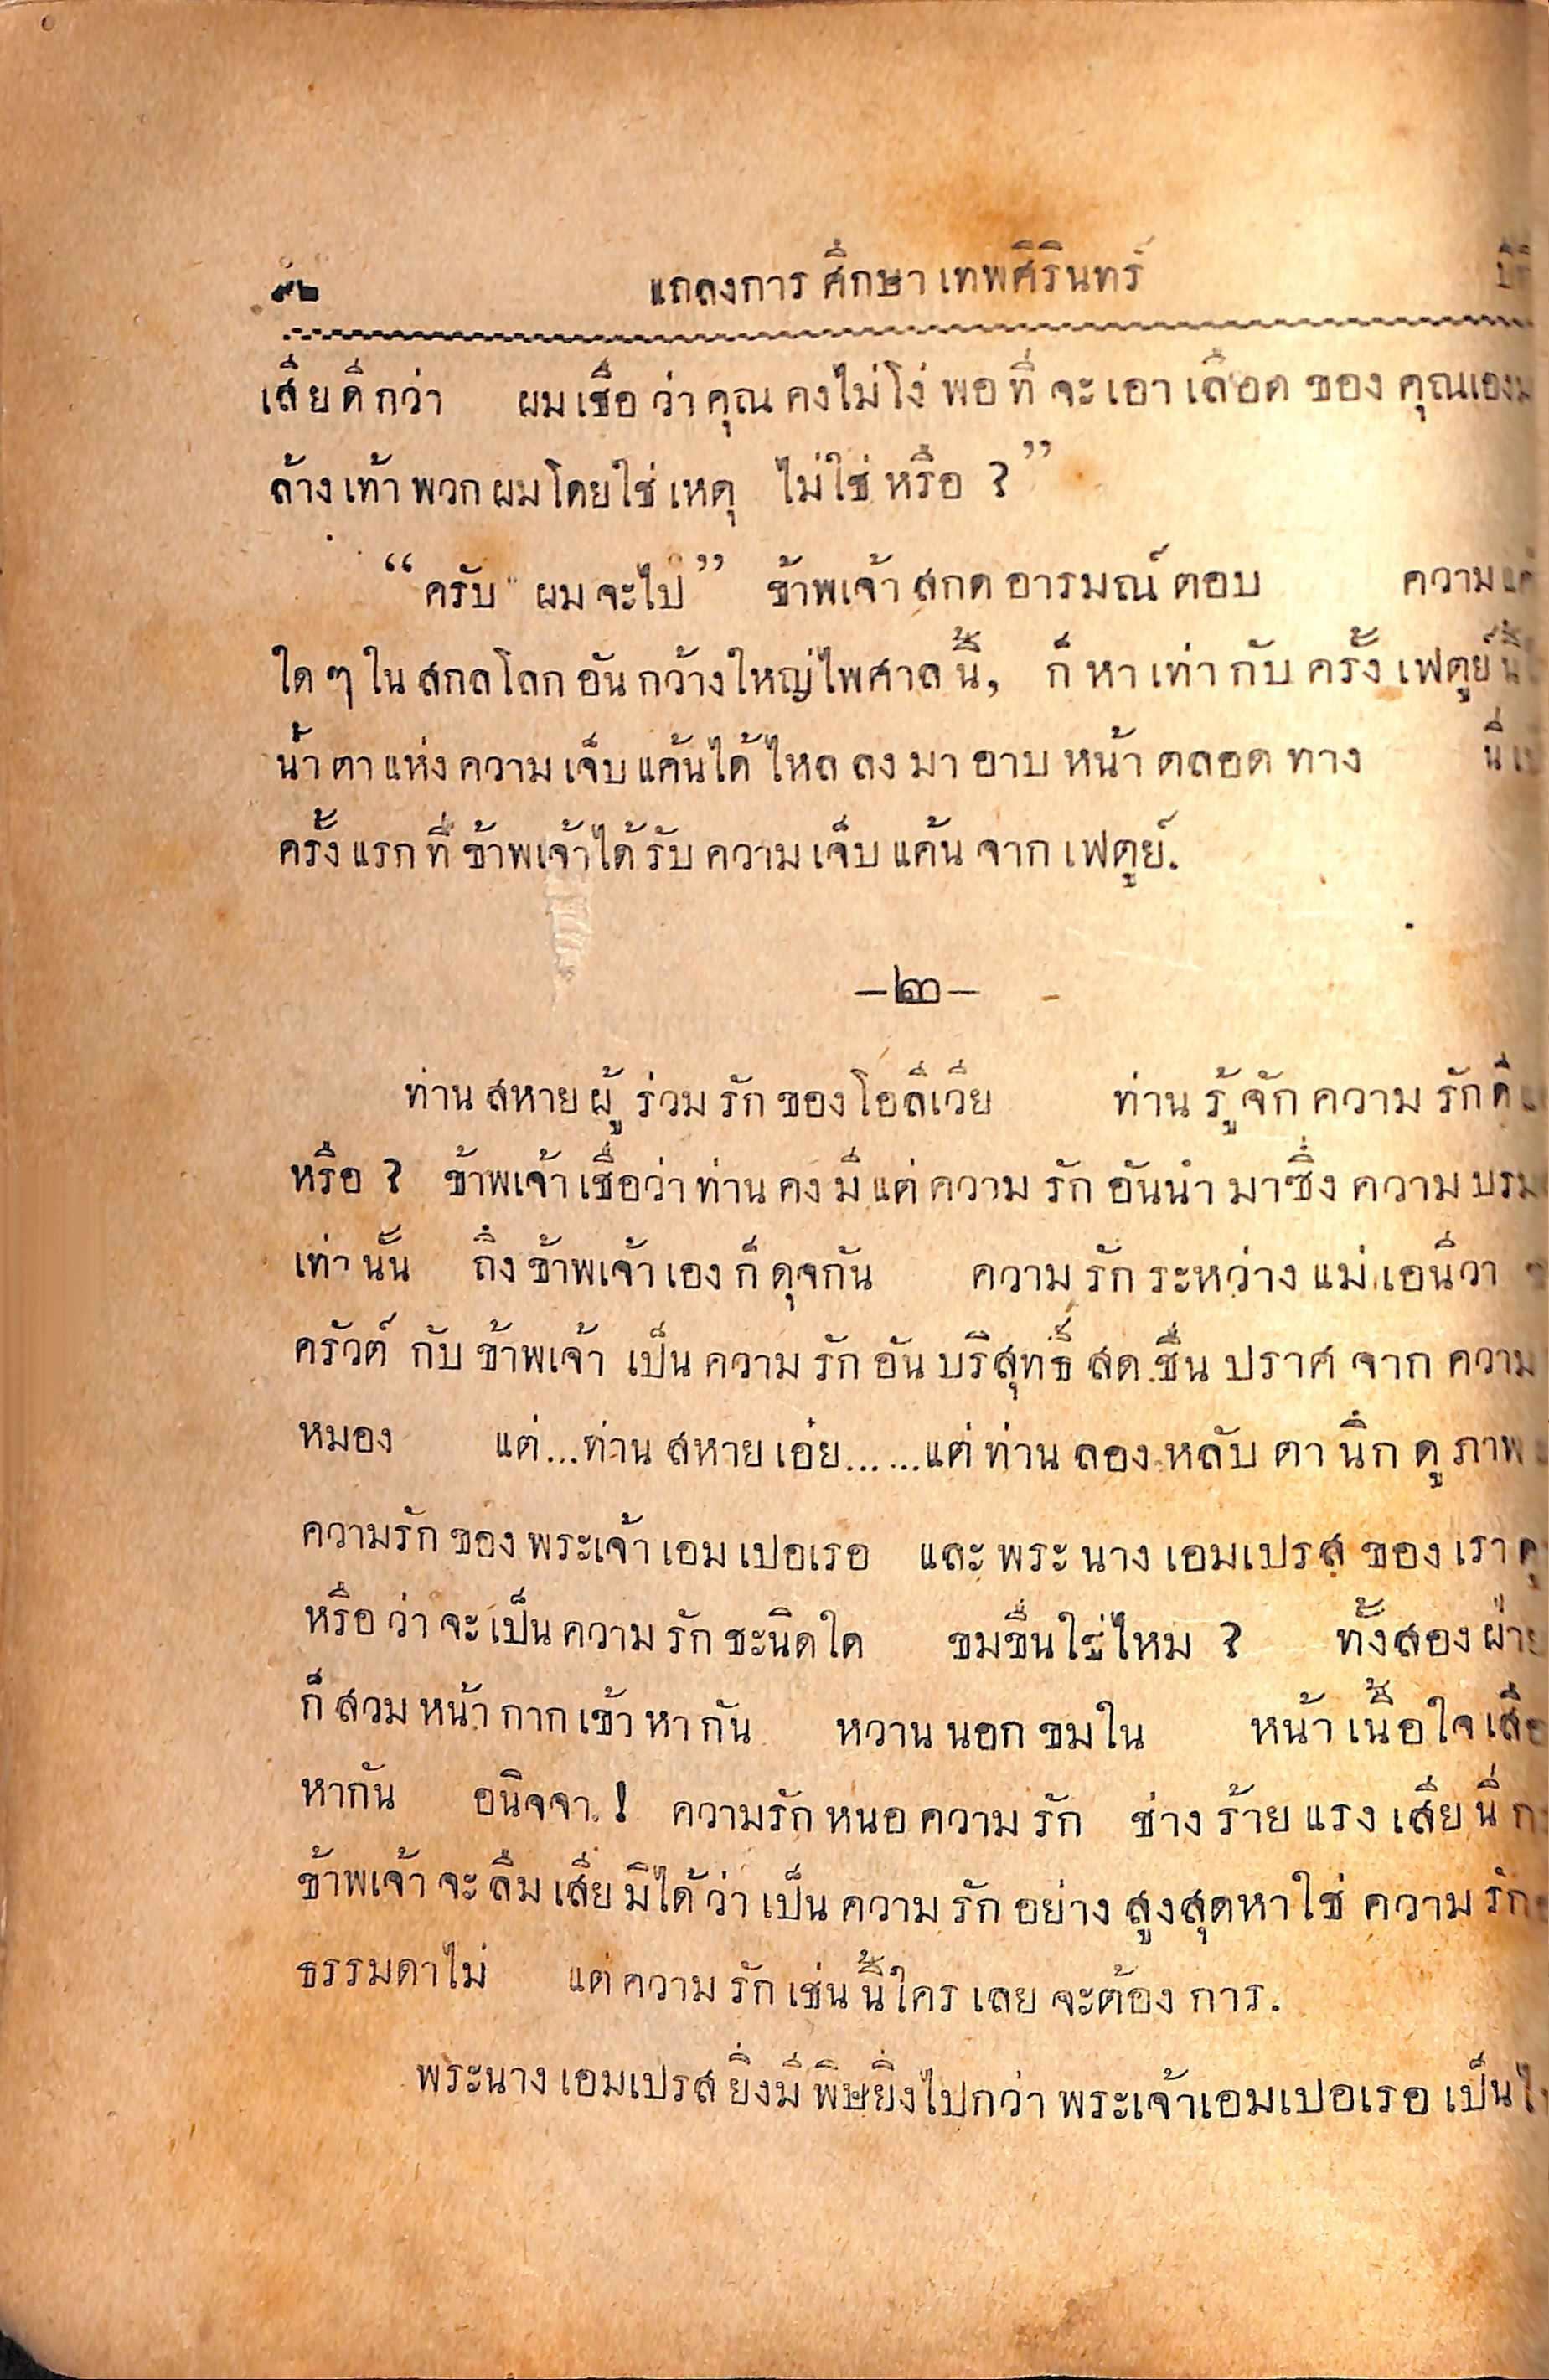 ๙๒ แถลงการศึกษาเทพศิรินทร์
เสียดีกว่า ผมเชื่อว่าคุณคงไม่โง่พอที่จะเอาเลือดของคุณเอง
ล้างเท้าพวกผมโดยใช่เหตุ ไม่ใช่หรือ ?”
“ครับ ผมจะไป” ข้าพเจ้าสกดอารมณ์ตอบ ความ
ใดๆในสกลโลกอันกว้างใหญ่ไพศาลนี้, ก็หาเท่ากับครั้งเฟตูย์นี้
น้ำตาแห่งความเจ็บแค้นได้ไหลลงมาอาบหน้าตลอดทาง นี่
ครั้งแรกที่ข้าพเจ้าได้รับความเจ็บแค้นจากเฟตูย์.
—๒—
ท่านสหายผู้ร่วมรักของโอลิเวีย ท่านรู้จักความรัก
หรือ ? ข้าพเจ้าเชื่อว่าท่านคงมีแต่ความรักอันนำมาซึ่งความ
เท่านั้น ถึงข้าพเจ้าเองก็ดุจกัน ความรักระหว่างแม่เอนีวา
ครัวต์ กับข้าพเจ้า เป็นความรักอันบริสุทธิ์สดชื่นปราศจากความ
หมอง แต่...ท่านสหายเอ๋ย......แต่ท่านลองหลับตานึกดูภาพ
ความรักของพระเจ้าเอมเปอเรอ และพระนางเอมเปรสของเรา
หรือว่าจะเป็นความรักชะนิดใด ขมขื่นใช่ไหม ? ทั้งสองฝ่าย
ก็สวมหน้ากากเข้าหากัน หวานนอกขมใน หน้าเนื้อใจเสือ
หากัน อนิจจา ! ความรักหนอความรัก ช่างร้ายแรงเสียนี่
ข้าพเจ้าจะลืมเสียมิได้ว่าเป็นความรักอย่างสูงสุดหาใช่ความรัก
ธรรมดาไม่ แต่ความรักเช่นนี้ใครเลยจะต้องการ.
พระนางเอมเปรสยิ่งมีพิษยิ่งไปกว่าพระเจ้าเอมเปอเรอเป็น